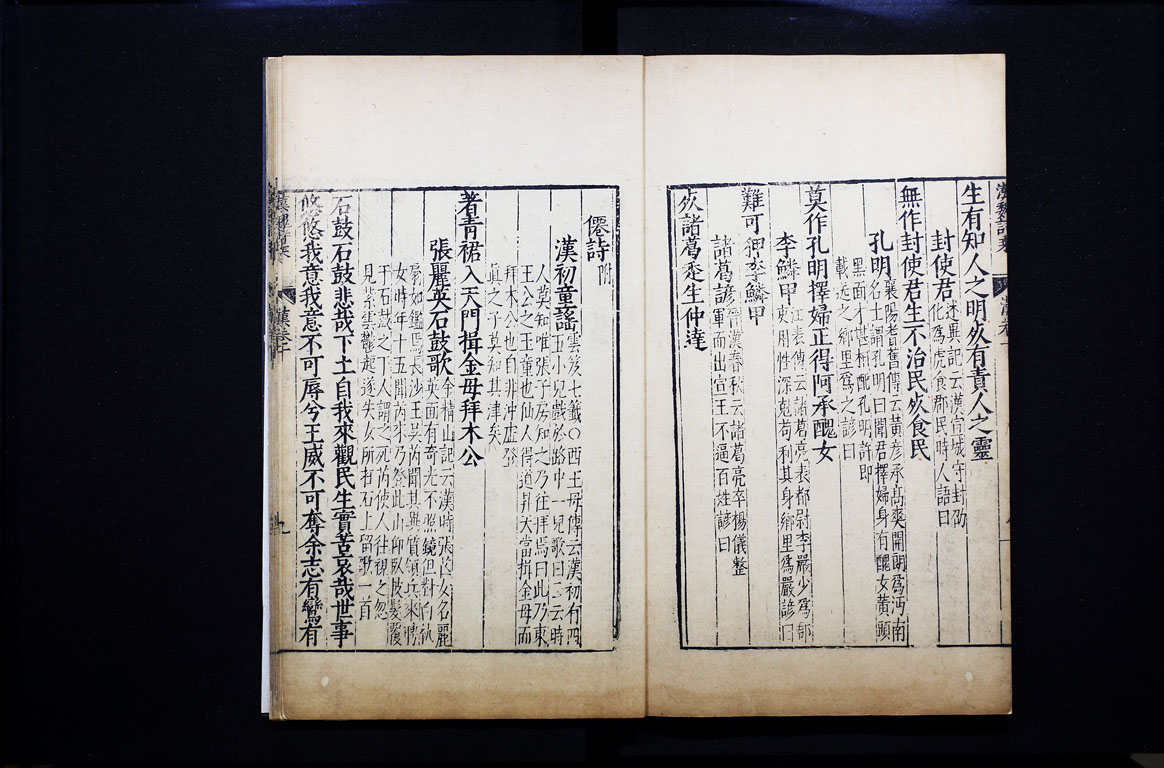 生有知人之明死有責人之靈
封使君述異記云漢宣城守封卲
化為虎食郡民時人語曰
無作封使君生不治民死食民
孔明襄陽耆舊傳云黃彥承高爽開朗為沔南
名士謂孔明曰聞君擇婦身有醜女黃頭
黑面才堪相配孔明許即
載送之鄉里為之諺曰
莫作孔明擇婦正得阿承醜女
李鱗甲江表傳云諸葛亮表都尉李嚴少為郡
吏用性深尅苟利其身鄉里為嚴諺曰
難可狎李鱗甲
諸葛諺晉漢春秋云諸葛亮卒楊儀整
軍而出宣王不逼百姓諺曰
死諸葛走生仲達
僊詩附
漢初童謠雲笈七籤○西王母傳云漢初有四
五小兒戲於路中一兒歌曰云云時
人莫知唯張子房知之乃往拜焉曰此乃東
王公之玉童也仙人得道昇天當揖金母而
拜木公也自非冲虛登
眞之子莫知其津矣
著青裙入天門揖金母拜木公
張麗英石鼓歌金精山記云漢時張芒女名麗
英面有奇光不照鏡但對白紈
扇如鑑焉長沙王吳芮聞其異質領兵來聘
女時年十五聞芮來乃登此山仰臥披髮覆
于石鼓之下人謂之死芮使人往視之忽
見紫雲鬱起遂失女所在石上留歌一首
石鼓石鼓悲哉下土自我來觀民生實苦哀哉世事
悠悠我意我意不可辱兮王威不可奪余志有鸞有